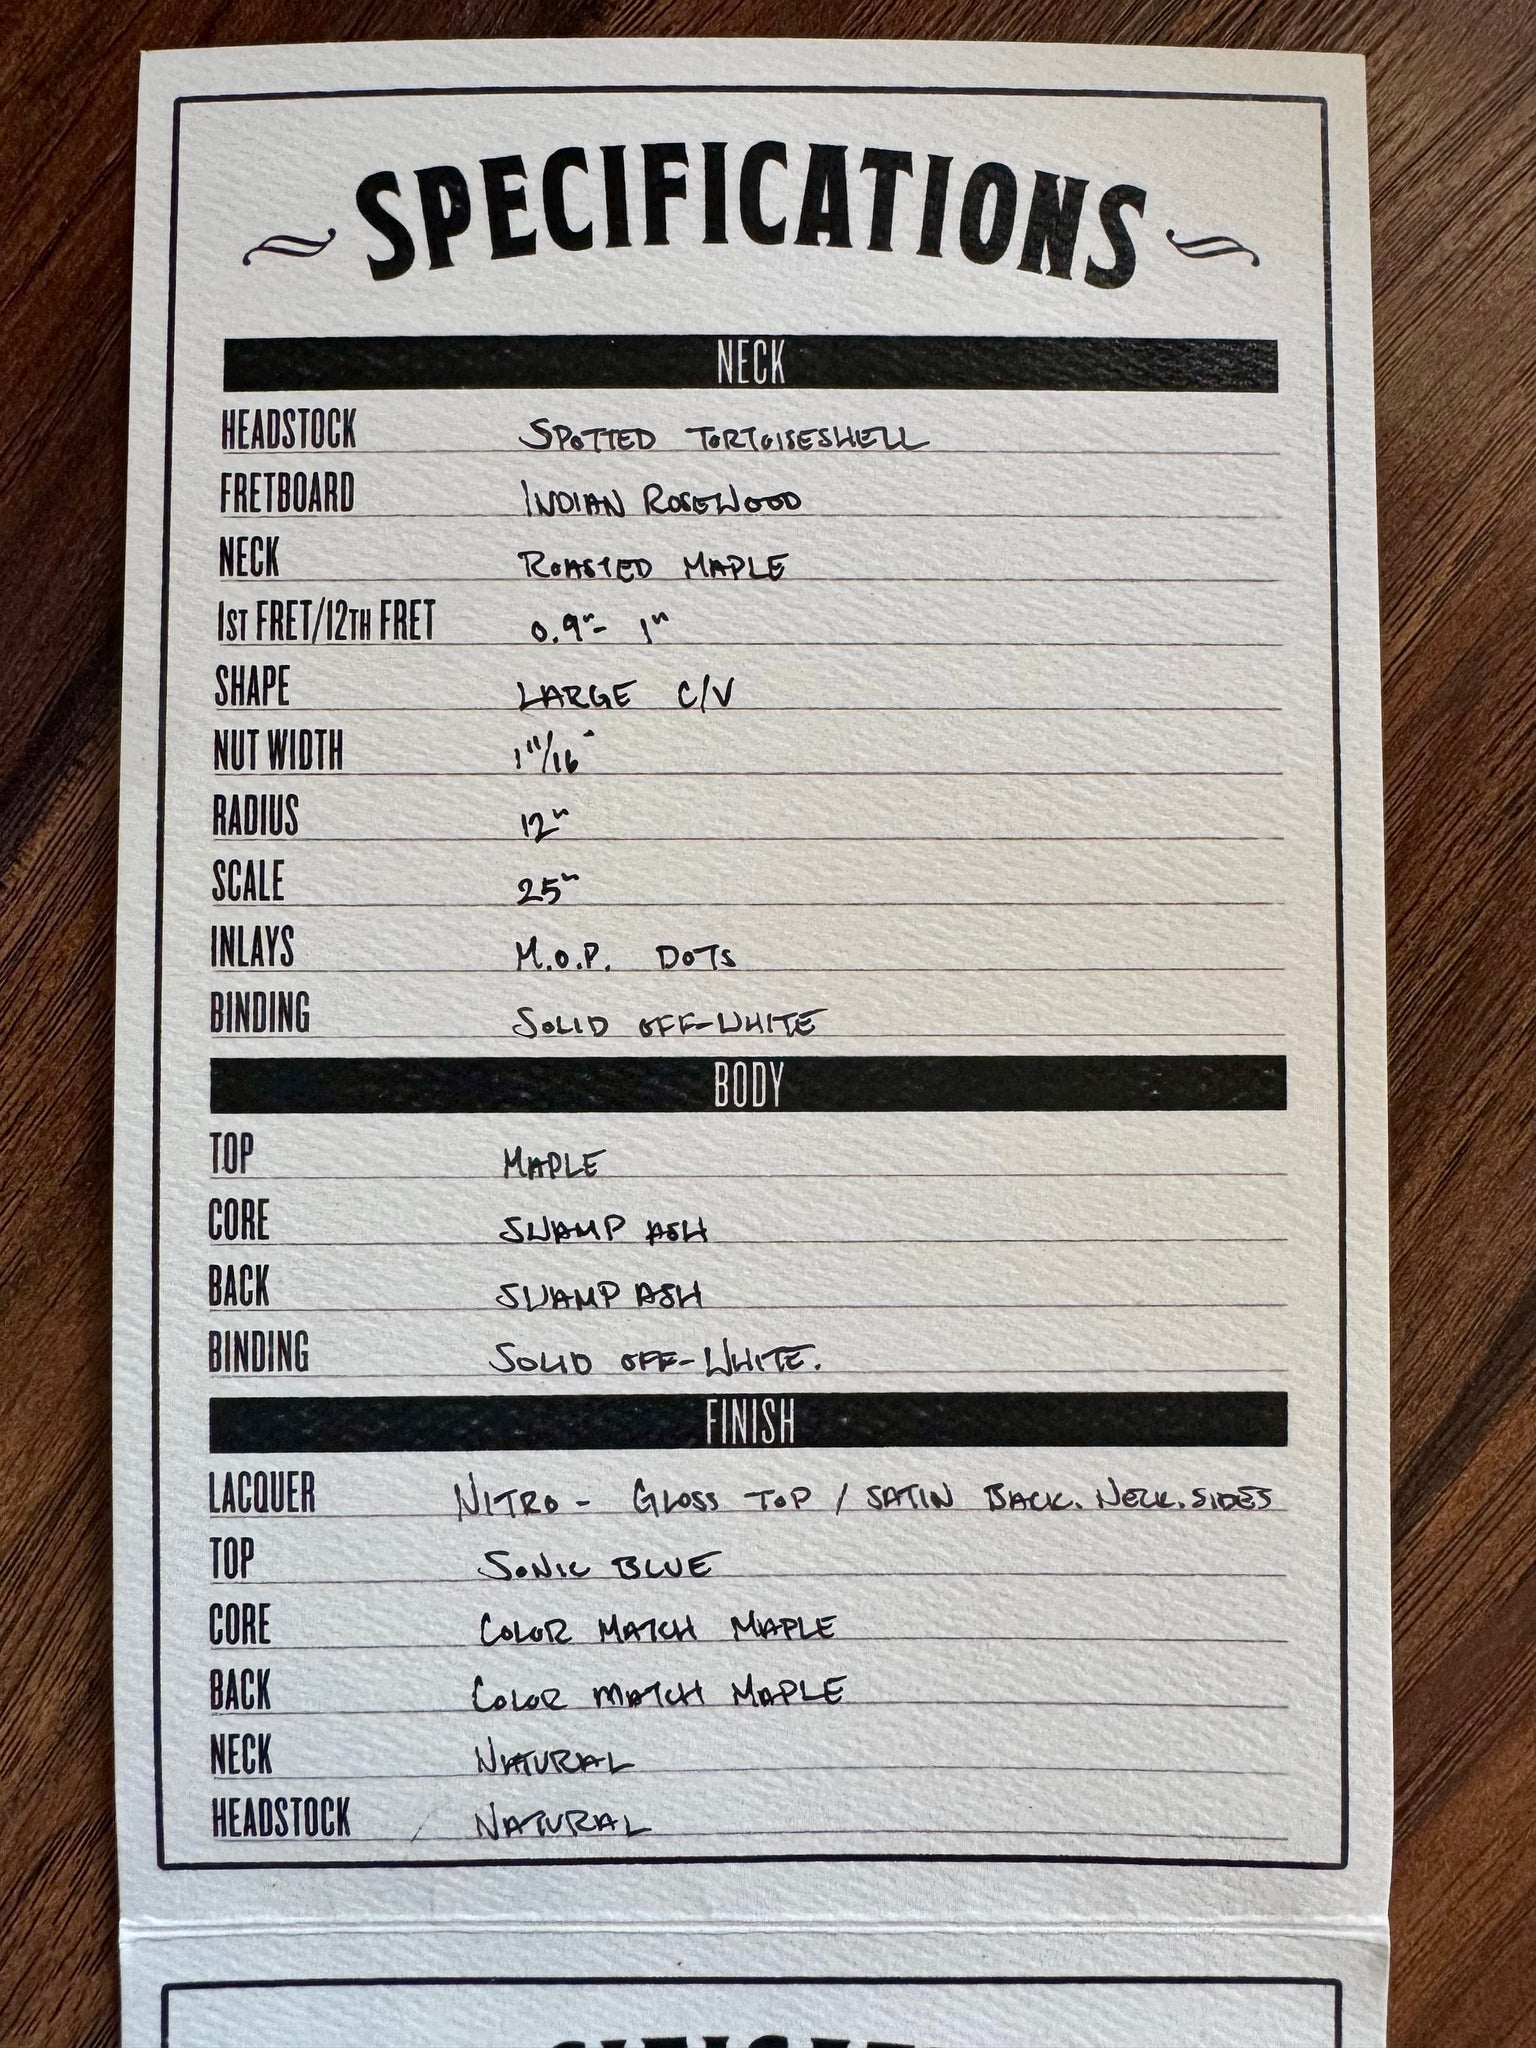 SPECIFICATIONS
NECK
HEADSTOCK SPOTTED TORTOISESHELL
FRETBOARD INDIAN ROSEWOOD
NECK ROASTED MAPLE
1ST FRET/12TH FRET 0.9"- 1"
SHAPE LARGE C/V
NUT WIDTH 1 11/16"
RADIUS 12"
SCALE 25"
INLAYS M.O.P. DOTS
BINDING SOLID OFF-WHITE
BODY
TOP MAPLE
CORE SWAMP ASH
BACK SWAMP ASH
BINDING SOLID OFF-WHITE.
FINISH
LACQUER NITRO - GLOSS TOP / SATIN BACK. NECK. SIDES
TOP SONIC BLUE
CORE COLOR MATCH MAPLE
BACK COLOR MATCH MAPLE
NECK NATURAL
HEADSTOCK NATURAL